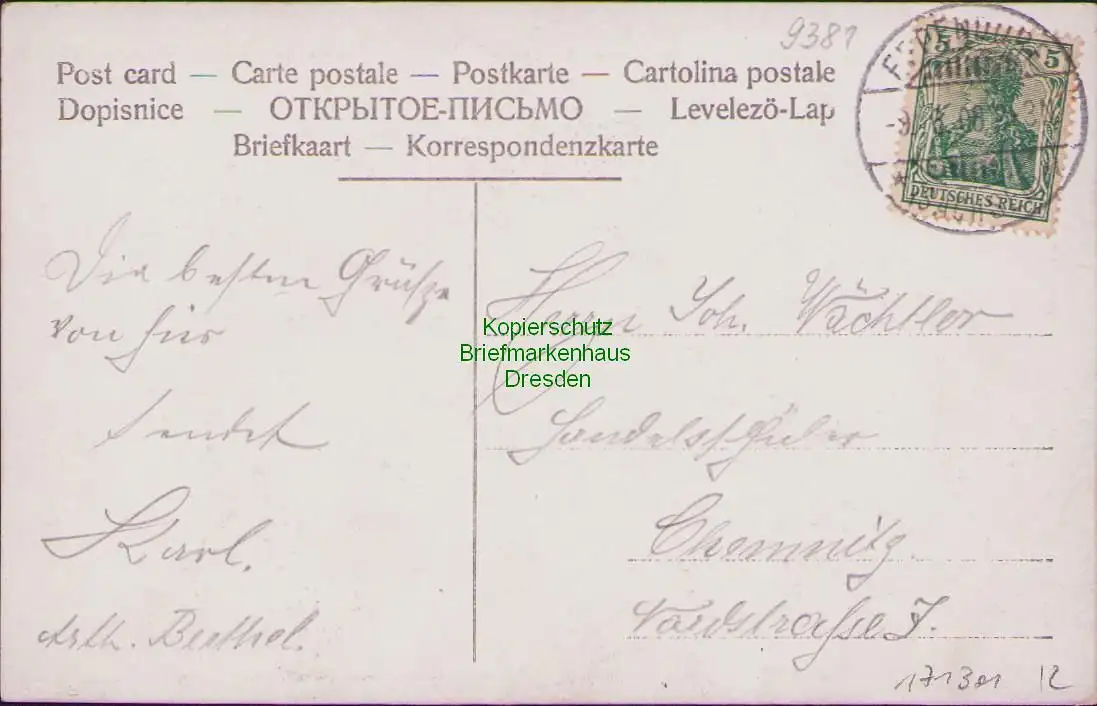 9381
Post card — Carte postale — Postkarte — Cartolina postale
Dopisnice — ОТКРЫТОЕ-ПИСЬМО — Levelezö-Lap
Briefkaart — Korrespondenzkarte
5 5
DEUTSCHES REICH
Die besten Grüße
von hier
sendet
Karl.
Arth. Berthol.
Kopierschutz
Briefmarkenhaus
Dresden
Herrn Joh. Wächtler
Handelsschüler
Chemnitz
Nordstrasse 7.
171301 12